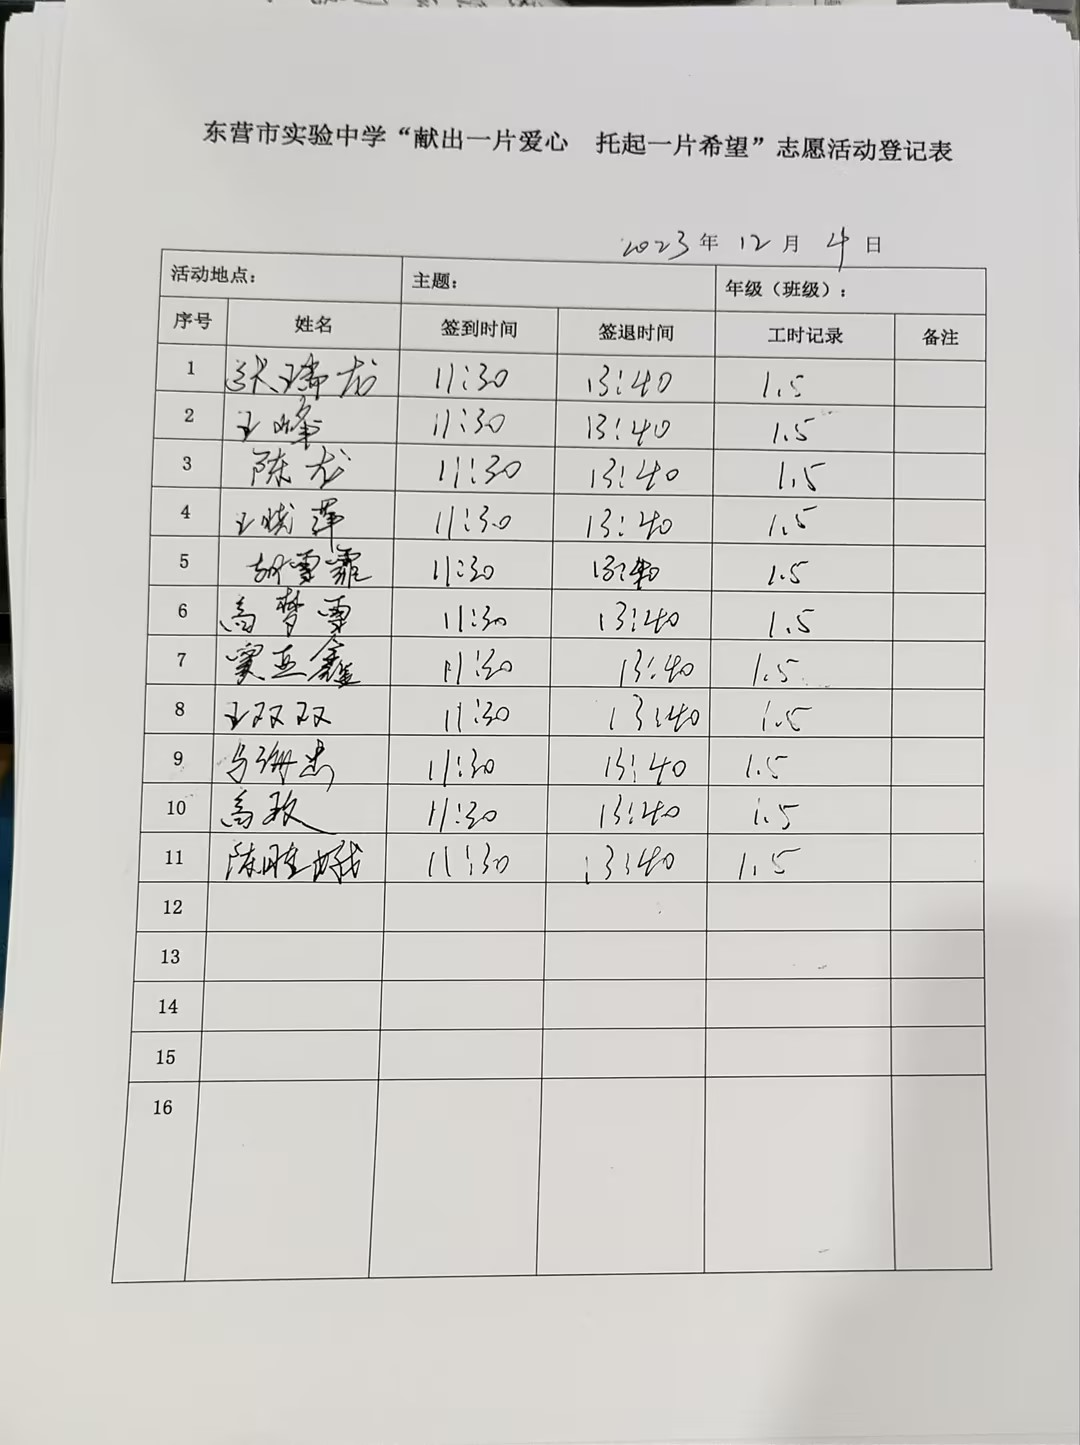 东营市实验中学“献出一片爱心 托起一片希望”志愿活动登记表
2023年 12月 4日
活动地点： 主题： 年级（班级）：
序号 姓名 签到时间 签退时间 工时记录 备注
1 张瑞龙 11:30 13:40 1.5
2 王峰 11:30 13:40 1.5
3 陈龙 11:30 13:40 1.5
4 王晓萍 11:30 13:40 1.5
5 胡雪霏 11:30 13:40 1.5
6 高梦雪 11:30 13:40 1.5
7 窦亚鑫 11:30 13:40 1.5
8 王双双 11:30 13:40 1.5
9 11:30 13:40 1.5
10 高玫 11:30 13:40 1.5
11 11:30 13:40 1.5
12
13
14
15
16